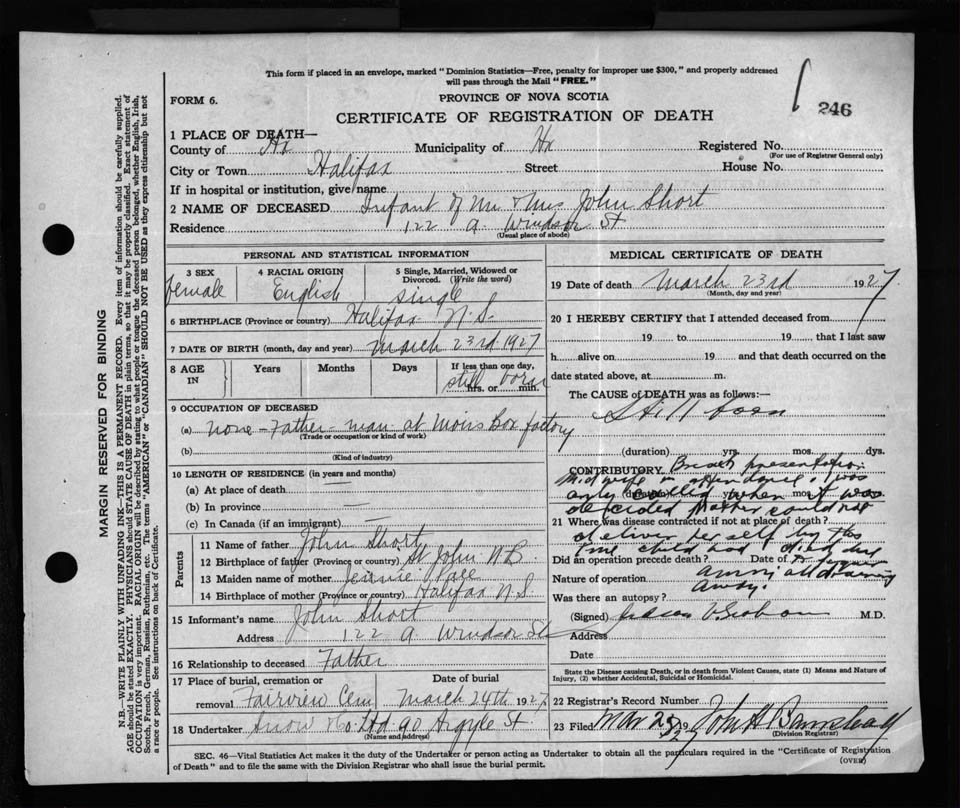 This form if placed in an envelope, marked "Dominion Statistics—Free, penalty for improper use $300," and properly addressed
will pass through the Mail "FREE."
246
FORM 6.
PROVINCE OF NOVA SCOTIA
CERTIFICATE OF REGISTRATION OF DEATH
1 PLACE OF DEATH—
County of Hx Municipality of Hx Registered No.
(For use of Registrar General only)
City or Town Halifax Street House No.
If in hospital or institution, give name
2 NAME OF DECEASED Infant of Mr & Mrs John Short
Residence 122 A. Windsor St
(Usual place of abode)
PERSONAL AND STATISTICAL INFORMATION
3 SEX 4 RACIAL ORIGIN 5 Single, Married, Widowed or
Divorced. (Write the word)
female English single
6 BIRTHPLACE (Province or country) Halifax N.S.
7 DATE OF BIRTH (month, day and year) March 23rd 1927
8 AGE IN Years Months Days If less than one day,
still born
hrs. or min.
9 OCCUPATION OF DECEASED
(a) none - Father - man at Moirs Box factory
(Trade or occupation or kind of work)
(b)
(Kind of industry)
10 LENGTH OF RESIDENCE (in years and months)
(a) At place of death —
(b) In province —
(c) In Canada (if an immigrant) —
Parents
11 Name of father John Short
12 Birthplace of father (Province or country) St John N.B.
13 Maiden name of mother
14 Birthplace of mother (Province or country) Halifax N.S.
15 Informant's name John Short
Address 122 A Windsor St
16 Relationship to deceased Father
17 Place of burial, cremation or Date of burial
removal Fairview Cem March 24th 1927
18 Undertaker Snow & Co Ltd 90 Argyle St
(Name and address)
MEDICAL CERTIFICATE OF DEATH
19 Date of death March 23rd 1927
(Month, day and year)
20 I HEREBY CERTIFY that I attended deceased from
19 to 19 that I last saw
h alive on 19 and that death occurred on the
date stated above, at m.
The CAUSE OF DEATH was as follows:—
Still born
(duration) yrs. mos. dys.
CONTRIBUTORY Breach presentation.
Midwife in attendance, I was
(duration) yrs. mos. dys.
only called when it was
decided Mother could not
21 Where was disease contracted if not at place of death?
deliver herself by this
time child had died
Did an operation precede death? Date of
Nature of operation
Was there an autopsy?
(Signed) M.D.
Address
Date
State the Disease causing Death, or in death from Violent Causes, state (1) Means and Nature of
Injury, (2) whether Accidental, Suicidal or Homicidal.
22 Registrar's Record Number
23 Filed Mar 1927
(Division Registrar)
SEC. 46—Vital Statistics Act makes it the duty of the Undertaker or person acting as Undertaker to obtain all the particulars required in the "Certificate of Registration
of Death" and to file the same with the Division Registrar who shall issue the burial permit. (OVER)
MARGIN RESERVED FOR BINDING
N.B.—WRITE PLAINLY WITH UNFADING INK—THIS IS A PERMANENT RECORD. Every item of information should be carefully supplied.
AGE should be stated EXACTLY. PHYSICIANS should STATE CAUSE OF DEATH in plain terms, so that it may be properly classified. Exact statement of
OCCUPATION is very important. RACIAL ORIGIN will be described by stating to what people or tongue the deceased person belonged, whether English, Irish,
Scotch, French, German, Russian, Ruthenian, etc. The terms "AMERICAN" or "CANADIAN" SHOULD NOT BE USED as they express citizenship but not
a race or people. See instructions on back of Certificate.